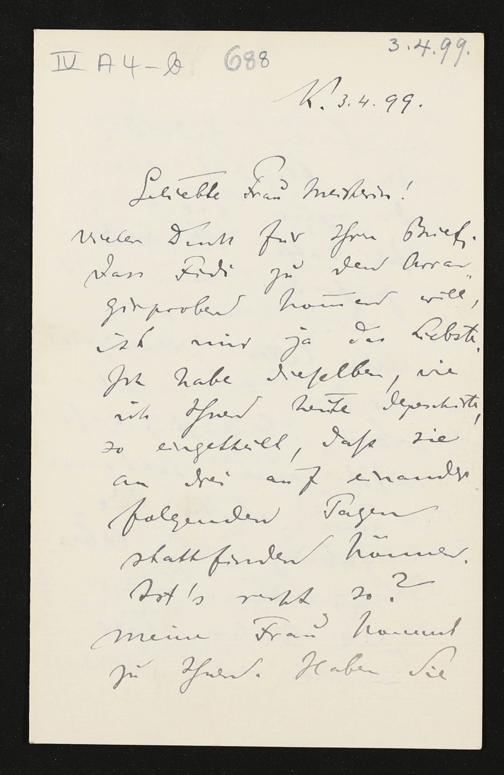 IV A 4 - b 688 3.4.99.
K. 3.4.99.
Geliebte Frau Meisterin!
Vielen Dank für Ihren Brief.
Dass Fidi zu den Arran-
girproben kommen will,
ist mir ja das Liebste.
Ich habe dieselben, wie
ich Ihnen heute depeschirte,
so eingetheilt, daß sie
an drei auf einander
folgenden Tagen
stattfinden können.
Ist's recht so?
Meine Frau kommt
zu Ihnen. Haben Sie